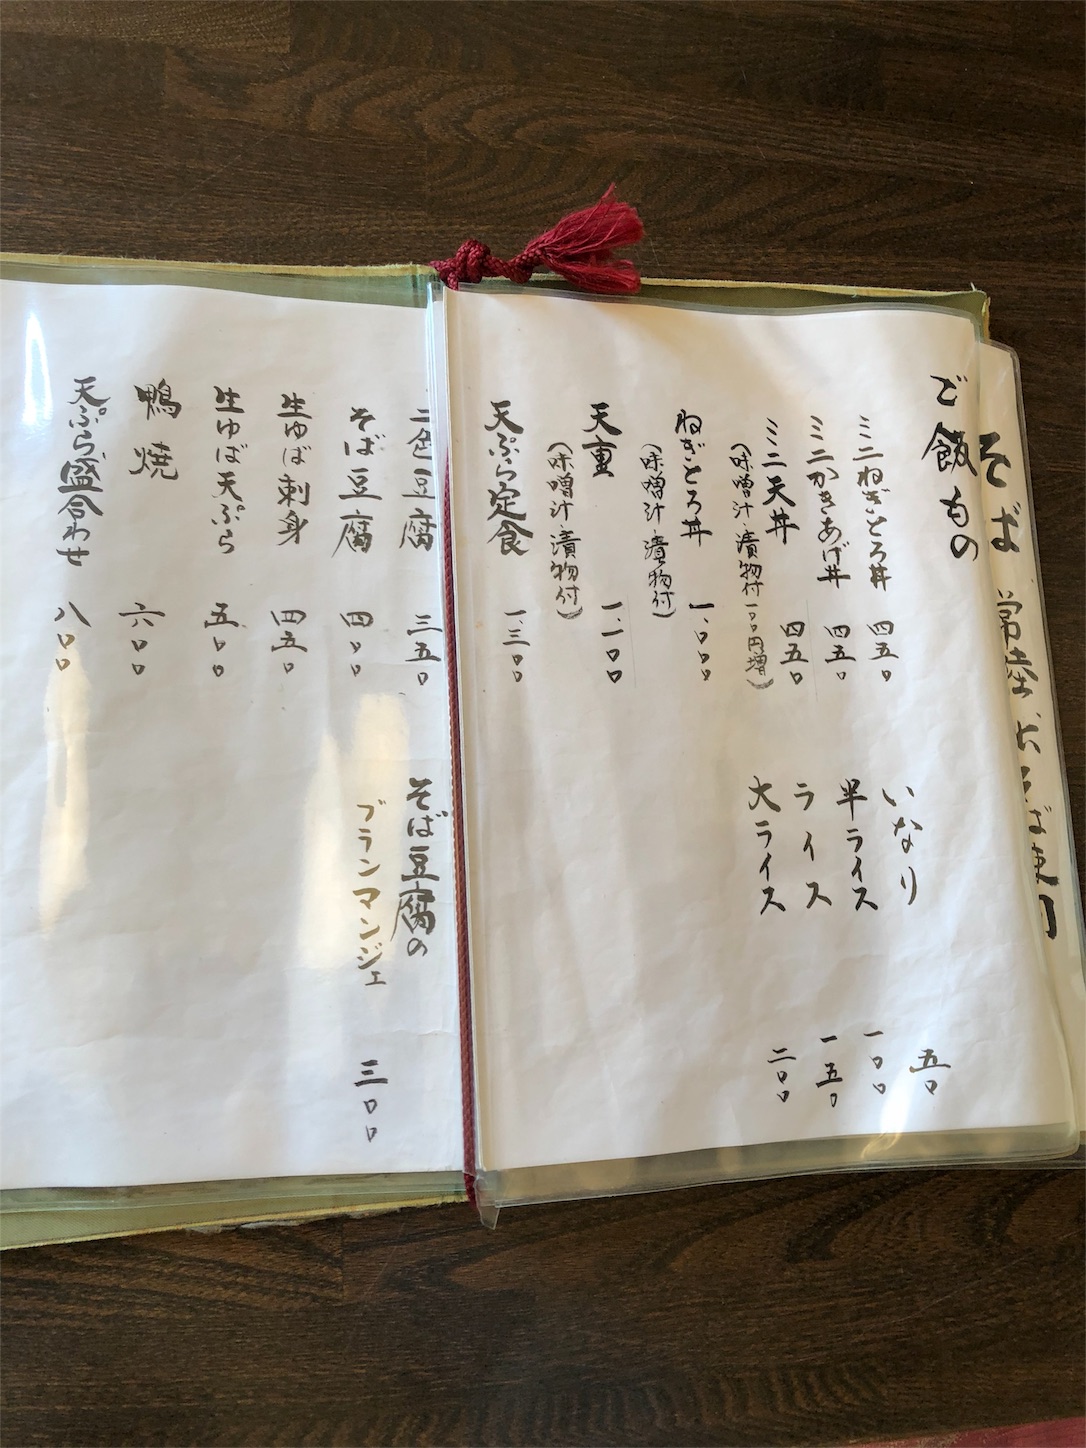 そば 常陸
ご飯もの
ミニねぎとろ丼 四五〇
ミニかきあげ丼 四五〇
ミニ天丼 四五〇
(味噌汁・漬物付一〇〇円増)
ねぎとろ丼 一、〇〇〇
(味噌汁・漬物付)
天重 一、一〇〇
(味噌汁・漬物付)
天ぷら定食 一、三〇〇
いなり 五〇
半ライス 一〇〇
ライス 一五〇
大ライス 二〇〇
二色豆腐 三五〇
そば豆腐 四〇〇
生ゆば刺身 四五〇
生ゆば天ぷら 五〇〇
鴨焼 六〇〇
天ぷら盛合わせ 八〇〇
そば豆腐の
ブランマンジェ 三〇〇